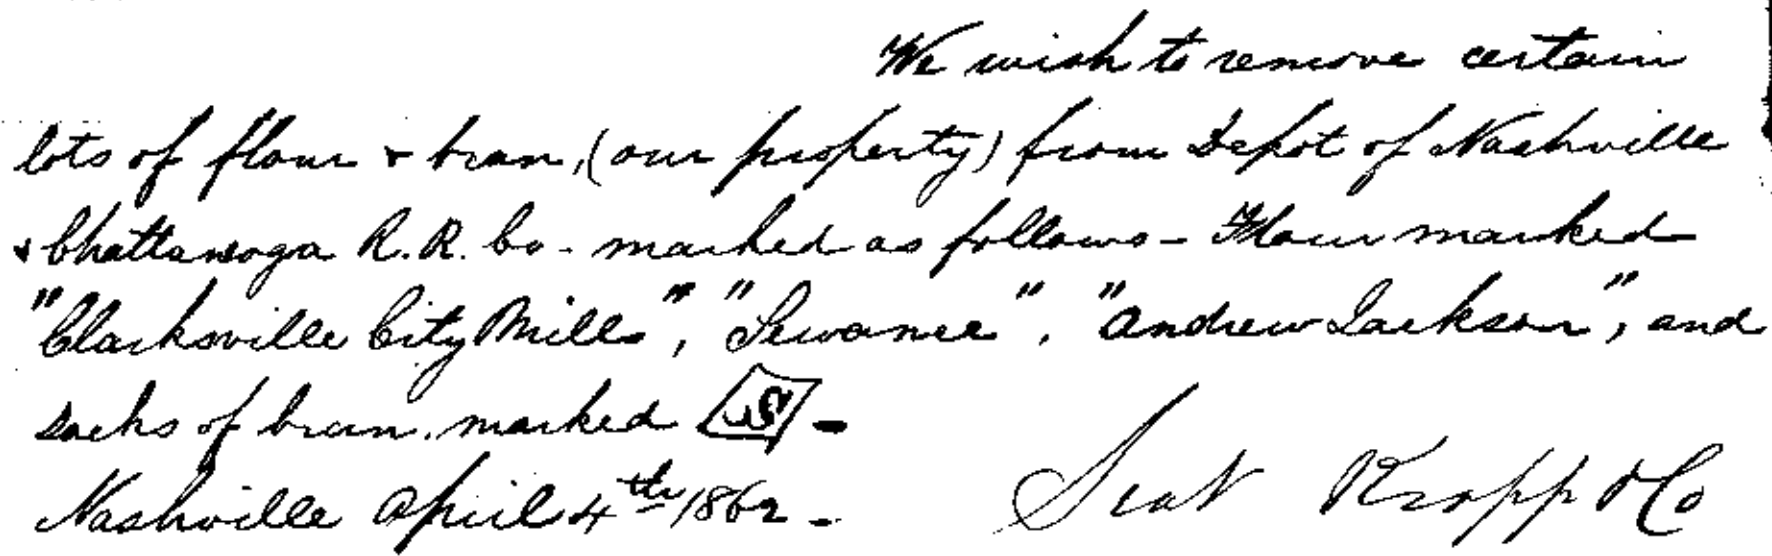 We wish to remove certain
lots of flour & bran, (our property) from Depot of Nashville
& Chattanooga R.R. Co - marked as follows - Flour marked
"Clarksville City Mills", "Sewanee", "Andrew Jackson", and
sacks of bran, marked -
Nashville April 4th 1862 - & Co